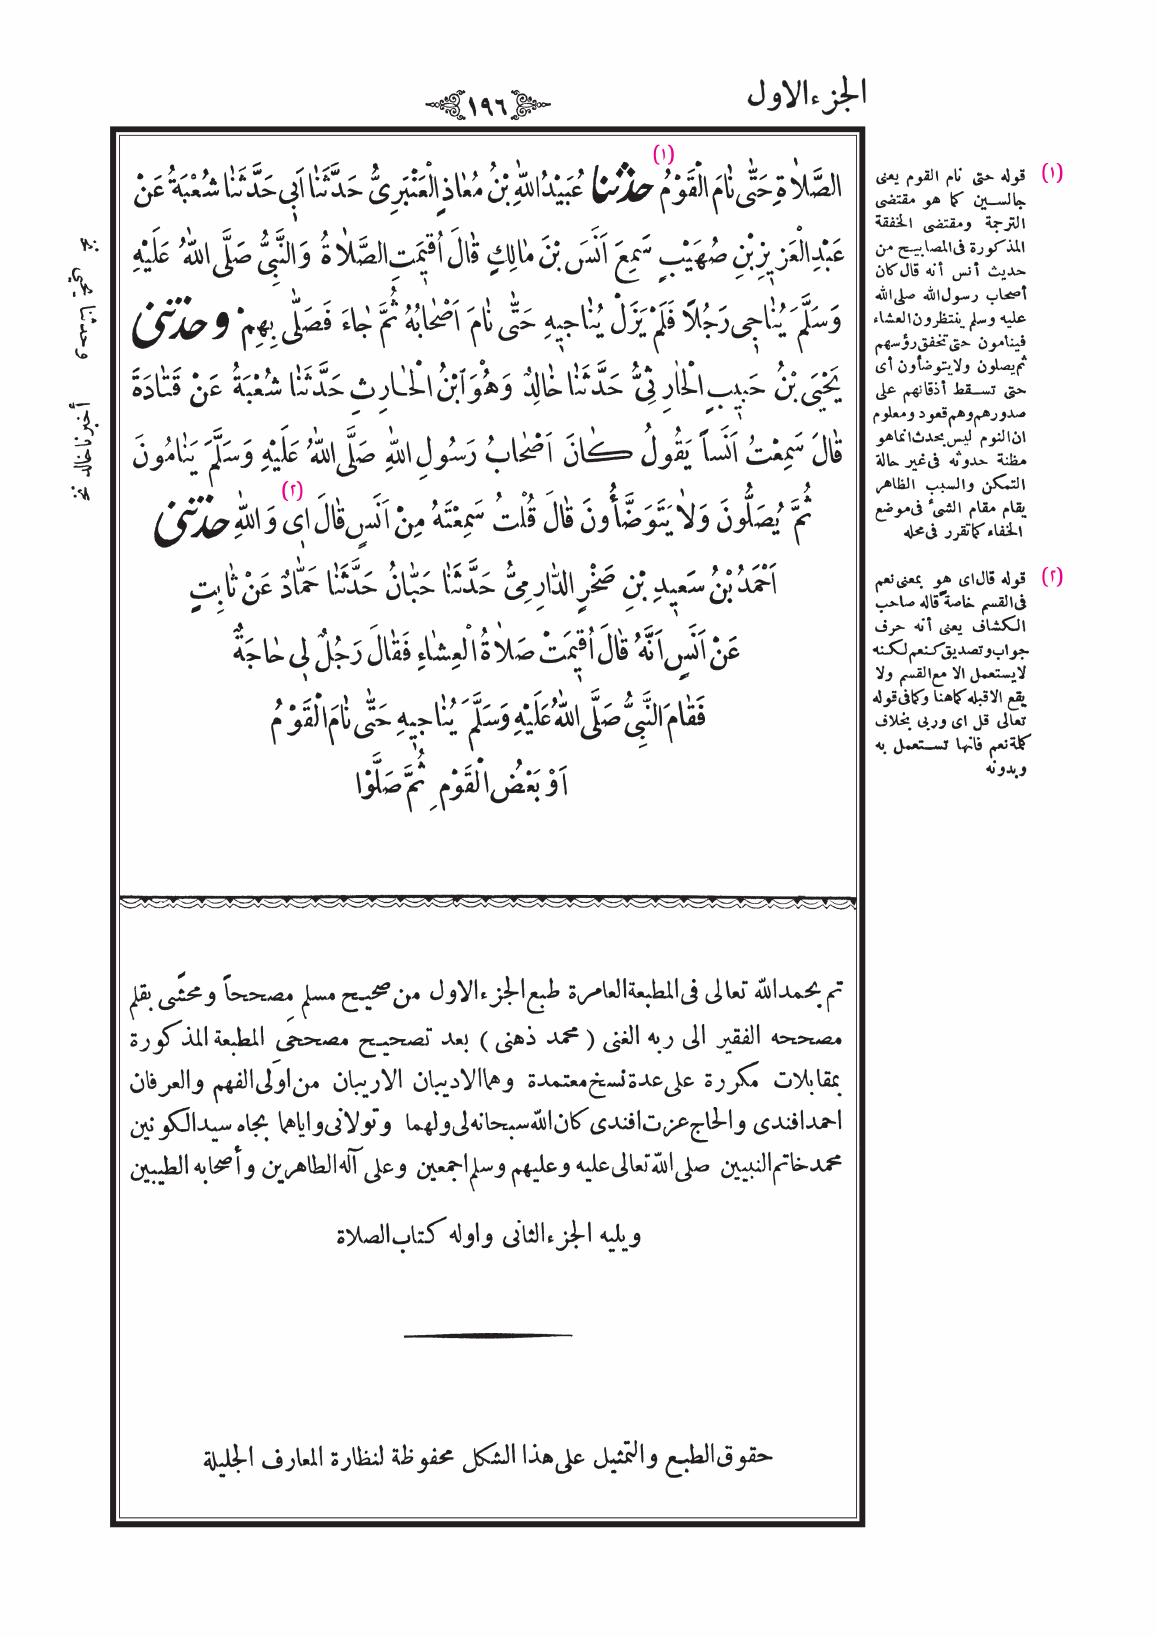 الجزء الاول
١٩٦
الصَّلاٰةِ حَتّٰى نٰامَ الْقَوْمُ (١) حدثنا عُبَيْدُ اللهِ بْنُ مُعٰاذٍ الْعَنْبَرِىُّ حَدَّثَنٰا اَبِى حَدَّثَنٰا شُعْبَةُ عَنْ
عَبْدِ الْعَزِيزِ بْنِ صُهَيْبٍ سَمِعَ اَنَسَ بْنَ مٰالِكٍ قٰالَ اُقيمَتِ الصَّلاٰةُ وَالنَّبِىُّ صَلَّى اللهُ عَلَيْهِ
وَسَلَّمَ يُنٰاجِى رَجُلاً فَلَمْ يَزَلْ يُنٰاجِيهِ حَتّٰى نٰامَ اَصْحٰابُهُ ثُمَّ جٰاءَ فَصَلّٰى بِهِمْ وحدثنى
يَحْيَى بْنُ حَبِيبٍ الْحٰارِثِىُّ حَدَّثَنٰا خٰالِدٌ وَهُوَ ابْنُ الْحٰارِثِ حَدَّثَنٰا شُعْبَةُ عَنْ قَتٰادَةَ
قٰالَ سَمِعْتُ اَنَساً يَقُولُ كٰانَ اَصْحٰابُ رَسُولِ اللهِ صَلَّى اللهُ عَلَيْهِ وَسَلَّمَ يَنٰامُونَ
ثُمَّ يُصَلُّونَ وَلاٰ يَتَوَضَّأُونَ قٰالَ قُلْتُ سَمِعْتَهُ مِنْ اَنَسٍ قٰالَ اِى وَاللهِ (٢) حدثنى
اَحْمَدُ بْنُ سَعِيدِ بْنِ صَخْرٍ الدّٰارِمِىُّ حَدَّثَنٰا حَبّٰانُ حَدَّثَنٰا حَمّٰادٌ عَنْ ثٰابِتٍ
عَنْ اَنَسٍ اَنَّهُ قٰالَ اُقيمَتْ صَلاٰةُ الْعِشٰاءِ فَقٰالَ رَجُلٌ لِى حٰاجَةٌ
فَقٰامَ النَّبِىُّ صَلَّى اللهُ عَلَيْهِ وَسَلَّمَ يُنٰاجِيهِ حَتّٰى نٰامَ الْقَوْمُ
اَوْ بَعْضُ الْقَوْمِ ثُمَّ صَلَّوْا
(١) قوله حتى نام القوم يعنى
جالسين كما هو مقتضى
الترجمة ومقتضى الخفقة
المذكورة فى المصابيح من
حديث أنس أنه قال كان
أصحاب رسول الله صلى الله
عليه وسلم ينتظرون العشاء
فينامون حتى تخفق رؤسهم
ثم يصلون ولا يتوضأون أى
حتى تسقط أذقانهم على
صدورهم وهم قعود ومعلوم
ان النوم ليس بحدث انما هو
مظنة حدوثه فى غير حالة
التمكن والسبب الظاهر
يقام مقام الشئ فى موضع
الخفاء كما تقرر فى محله
(٢) قوله قال اى هو بمعنى نعم
فى القسم خاصة قاله صاحب
الكشاف يعنى أنه حرف
جواب وتصديق كنعم لكنه
لا يستعمل الا مع القسم ولا
يقع الا قبله كما هنا وكما فى قوله
تعالى قل اى وربى بخلاف
كلمة نعم فانها تستعمل به
وبدونه
وحدثنا يحيى نخ
أخبرنا خالد نخ
تم بحمد الله تعالى فى المطبعة العامرة طبع الجزء الاول من صحيح مسلم مصححاً ومحشّى بقلم
مصححه الفقير الى ربه الغنى (محمد ذهنى) بعد تصحيح مصححَى المطبعة المذكورة
بمقابلات مكررة على عدة نسخ معتمدة وهما الاديبان الاريبان من اولى الفهم والعرفان
احمد افندى والحاج عزت افندى كان الله سبحانه لى ولهما وتولانى واياهما بجاه سيد الكونين
محمد خاتم النبيين صلى الله تعالى عليه وعليهم وسلم اجمعين وعلى آله الطاهرين وأصحابه الطيبين
ويليه الجزء الثانى واوله كتاب الصلاة
حقوق الطبع والتمثيل على هذا الشكل محفوظة لنظارة المعارف الجليلة